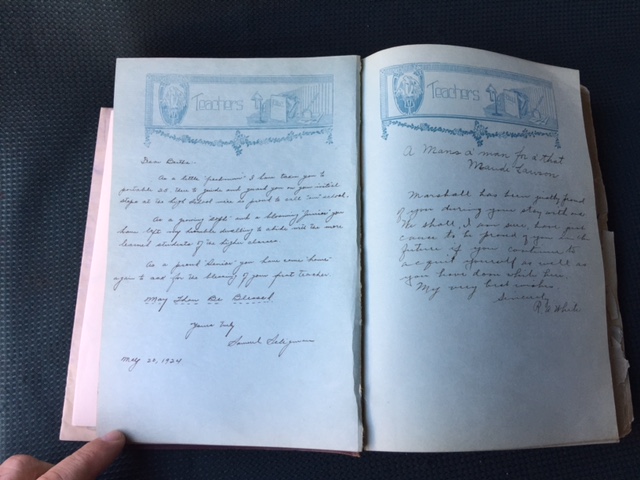 Teachers
Dear Bertha
As a little "freshman" I have seen you so
to guide and guard you on your initial
steps at the high school were so proud to call "our" school.
As a "Soph" and a blooming "Junior" you
have left my humble dwelling to abide with the more
learned students of the higher classes
As a proud "Senior" you have come "home"
again to ask for the blessing of your first teacher
May Thou Be Blessed
Yours Truly
Samuel
May 20, 1924
Teachers
A Man's a man for a' that
Maude
Marshall has been justly proud
of you during your stay with us.
We shall, I am sure, have just
cause to be proud of you in the
future if you continue to
acquit yourself as well as
you have done while here.
My very best wishes
Sincerely,
R. G. White